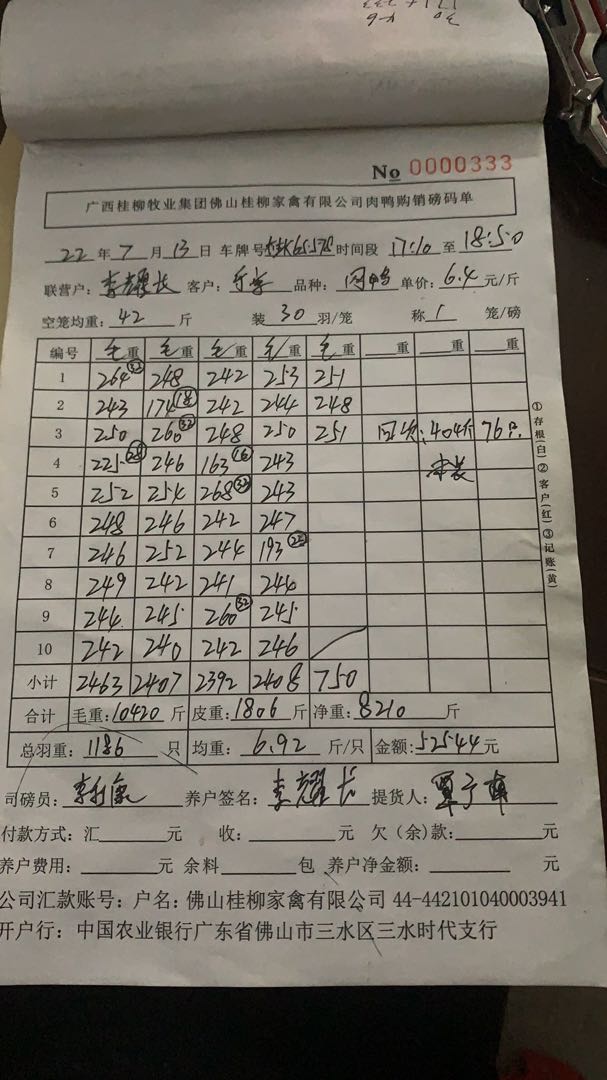 No 0000333
广西桂柳牧业集团佛山桂柳家禽有限公司肉鸭购销磅码单
22 年 7 月 13 日 车牌号 时间段 17:10 至 18:50
联营户: 李耀长 客户: 品种: 肉鸭 单价: 6.4 元/斤
空笼均重: 42 斤 装 30 羽/笼 称 1 笼/磅
编号 毛重 毛重 毛重 毛重 毛重 重 重 重
1 264 32 248 242 253 251
2 243 174 18 242 244 248
3 250 260 32 248 250 251 404斤 76只
4 225 28 246 163 16 243
5 252 254 268 32 243
6 248 246 242 247
7 246 252 244 193 22
8 249 242 241 244
9 244 245 260 32 245
10 242 240 242 246
小计 2463 2407 2392 2408 750
合计 毛重: 10420 斤 皮重: 1806 斤 净重: 8210 斤
总羽重: 1186 只 均重: 6.92 斤/只 金额: 52544 元
司磅员: 养户签名: 李耀长 提货人:
付款方式: 汇 元 收: 元 欠(余)款: 元
养户费用: 元 余料 包 养户净金额: 元
公司汇款账号: 户名: 佛山桂柳家禽有限公司 44-442101040003941
开户行: 中国农业银行广东省佛山市三水区三水时代支行
①存根(白)②客户(红)③记账(黄)